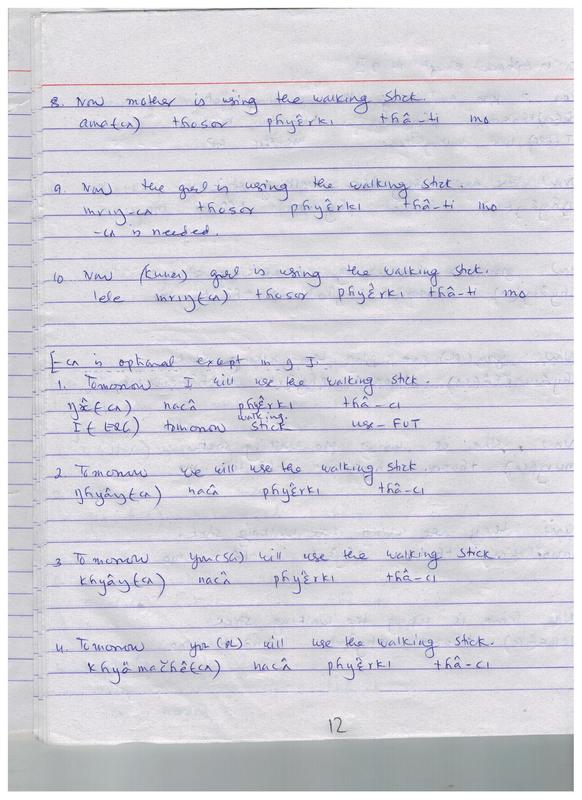 8. Now mother is using the walking stick.
ama(-cʌ) thosor phyɛ̂rkı thâ-ti mo
9. Now the girl is using the walking stick.
mrıŋ-cʌ thosor phyɛ̂rkı thâ-ti mo
-cʌ is needed.
10 Now girl is using the walking stick.
lele mrıŋ(-cʌ) thosor phyɛ̂rkı thâ-ti mo
[-cʌ is optional except in 9].
1. Tomorrow I will use the walking stick.
(-cʌ) nacʌ̂ phyɛ̂rkı thâ-cı
I (-ERG) tomorrow walking stick use-FUT
2 Tomorrow we will use the walking stick.
ŋhyây(-cʌ) nacʌ̂ phyɛ̂rkı thâ-cı
3 Tomorrow you (SG) will use the walking stick
khyây(-cʌ) nacʌ̂ phyɛ̂rkı thâ-cı
4. Tomorrow you (PL) will use the walking stick.
khyä mačhâ(-cʌ) nacʌ̂ phyɛ̂rkı thâ-cı
12